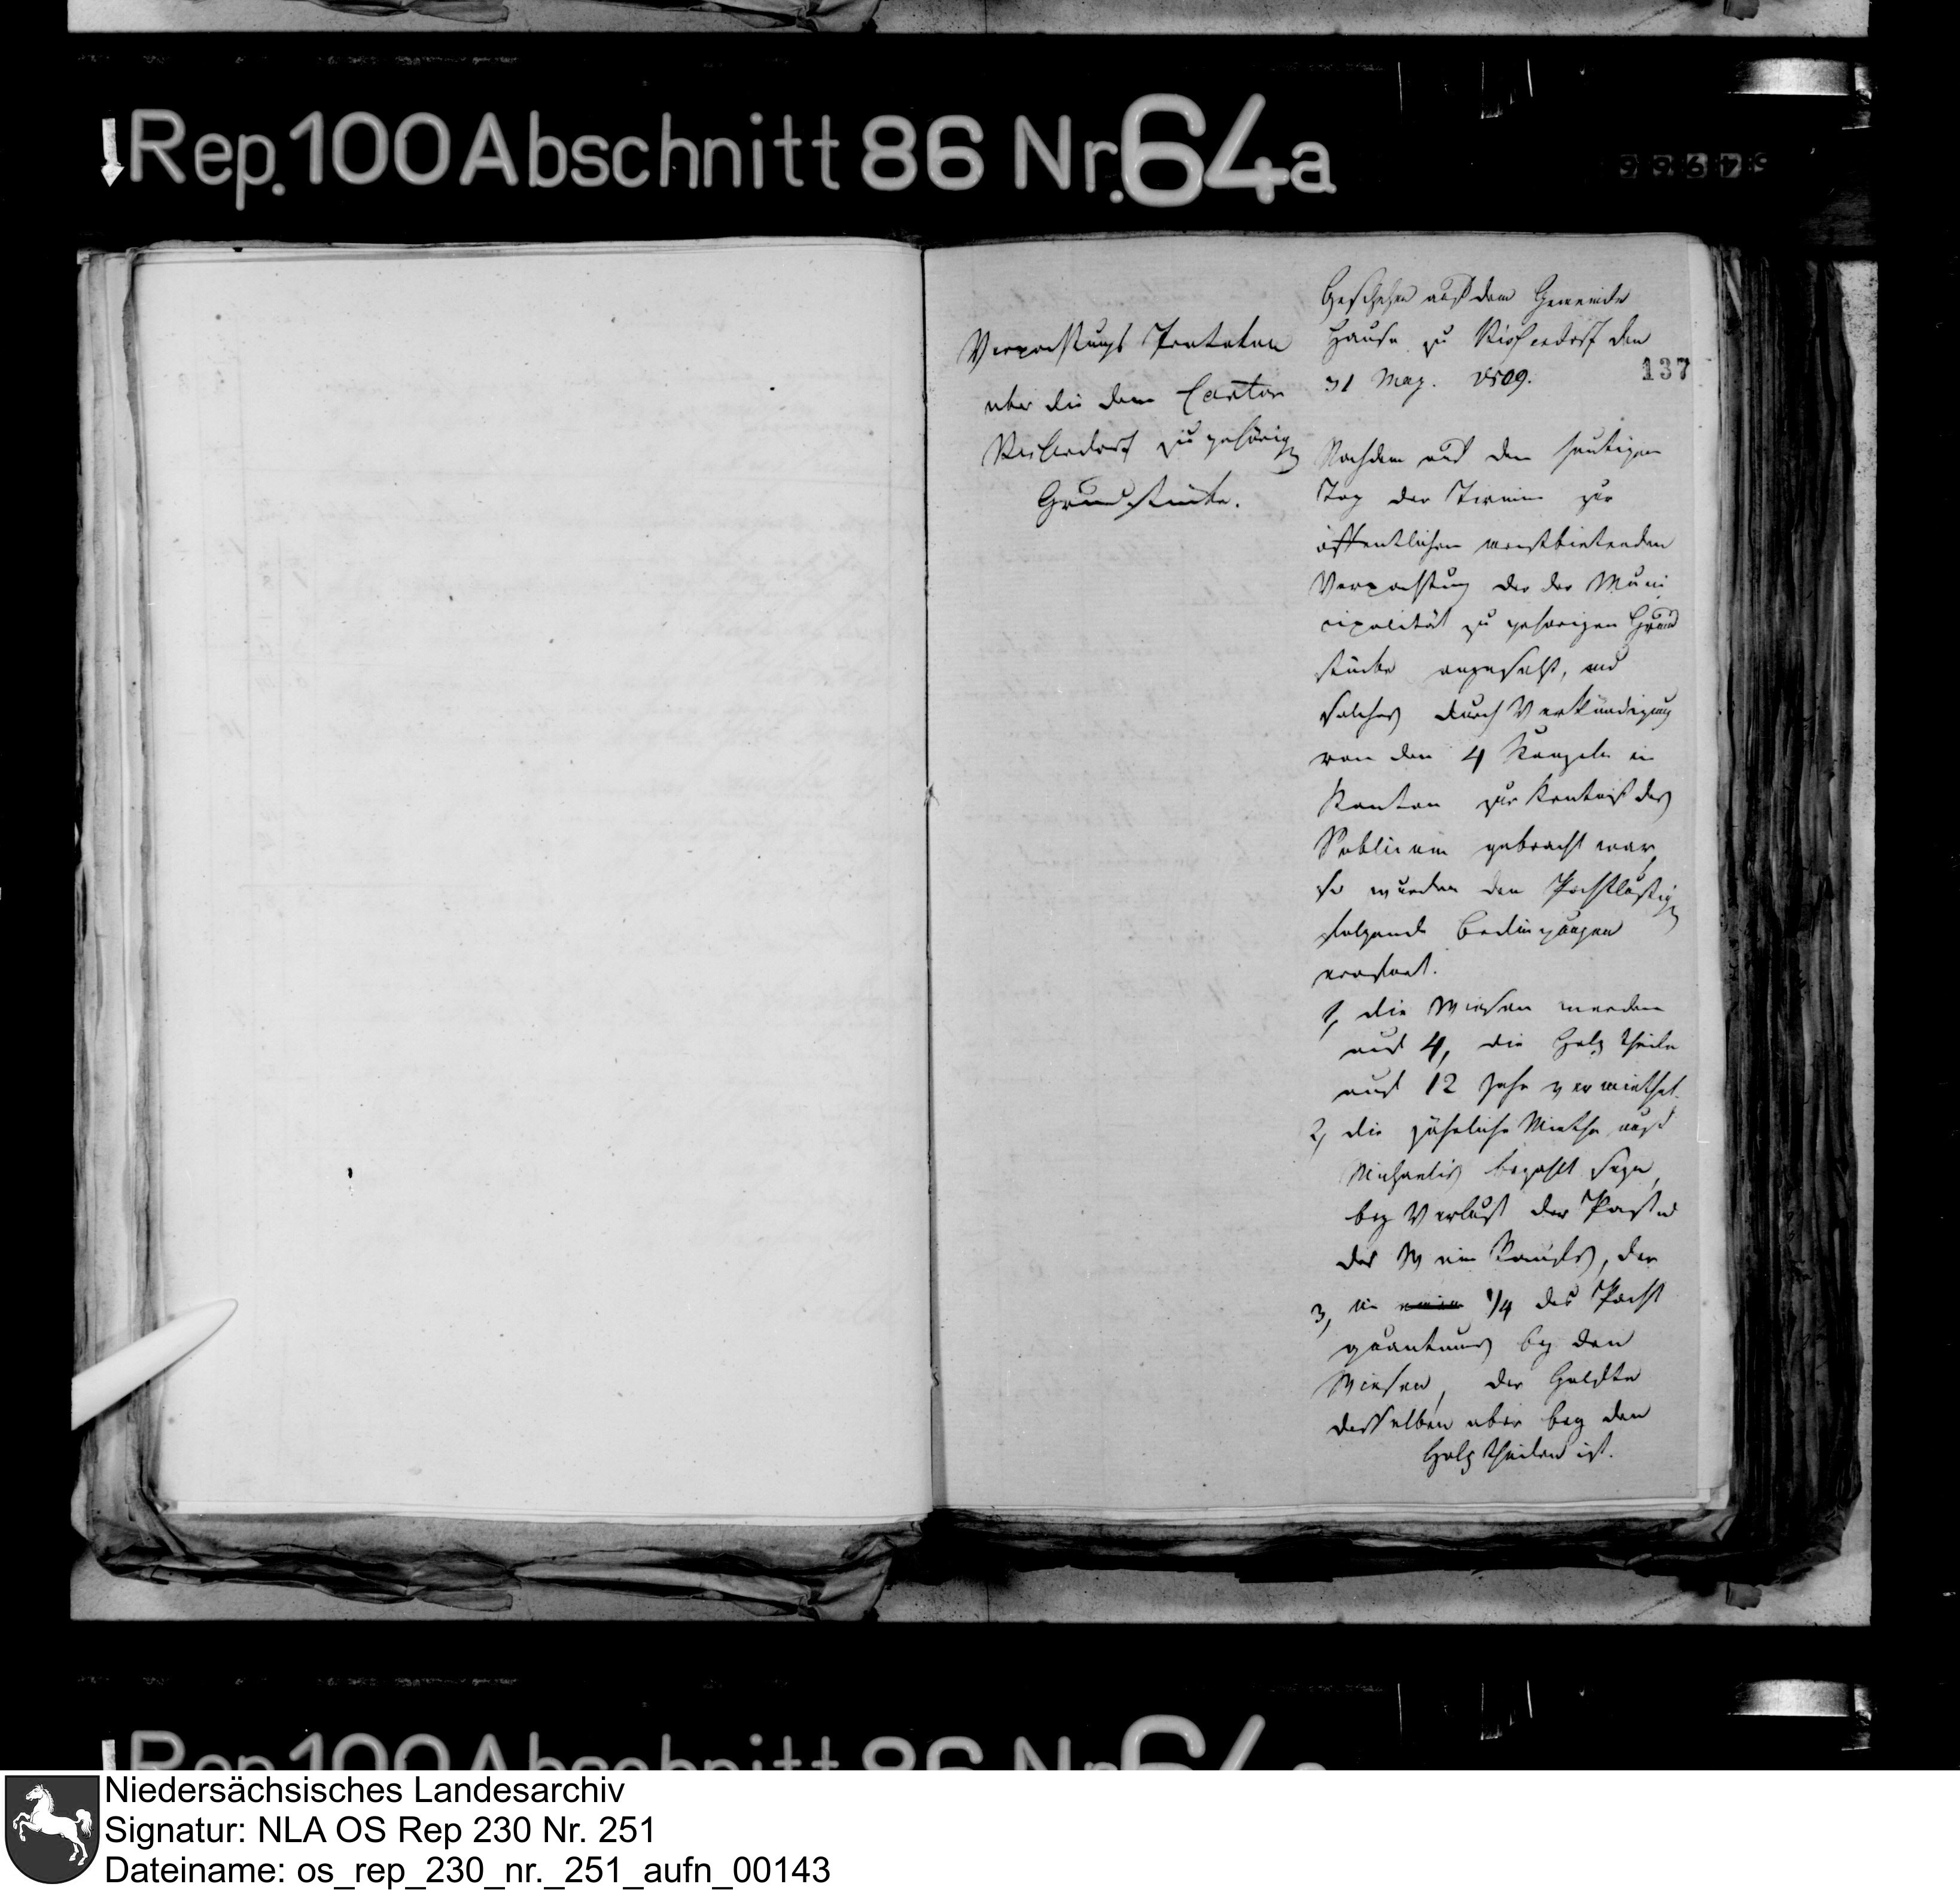 Rep. 100 Abschnitt 86 Nr. 64a
Verpachtungs Protokoll
über die dem Canton
zu gehörigen
Grundstücke.
Geschehen auf dem Gemeinde
Hause zu den
31 May. 1809.
137
Nachdem auf den heutigen
Tag der Termin zur
öffentlichen meistbietenden
Verpachtung der der Muni
cipalität zu gehörigen Grund
stücke angesetzt, und
solches durch Verkündigung
von den 4 Kanzeln in
Kanton zur Kentniß des
Publicum gebracht war,
so wurden den Pachtlustigen
folgende Bedingungen
1, die Wiesen werden
auf 4, die Holz theile
auf 12 Jahr vermiethet.
2, die jährliche Miethe auf
Michaelis bezahlt seyn,
bey Verlust der Pacht u
des Wein Kaufs, der
3, in 1/4 des Pacht
quantums bey den
Wiesen, der Helfte
desselben aber bey den
Holz theilen ist.
Rep. 100 Abschnitt 86 Nr. 64a
Niedersächsisches Landesarchiv
Signatur: NLA OS Rep 230 Nr. 251
Dateiname: os_rep_230_nr._251_aufn_00143